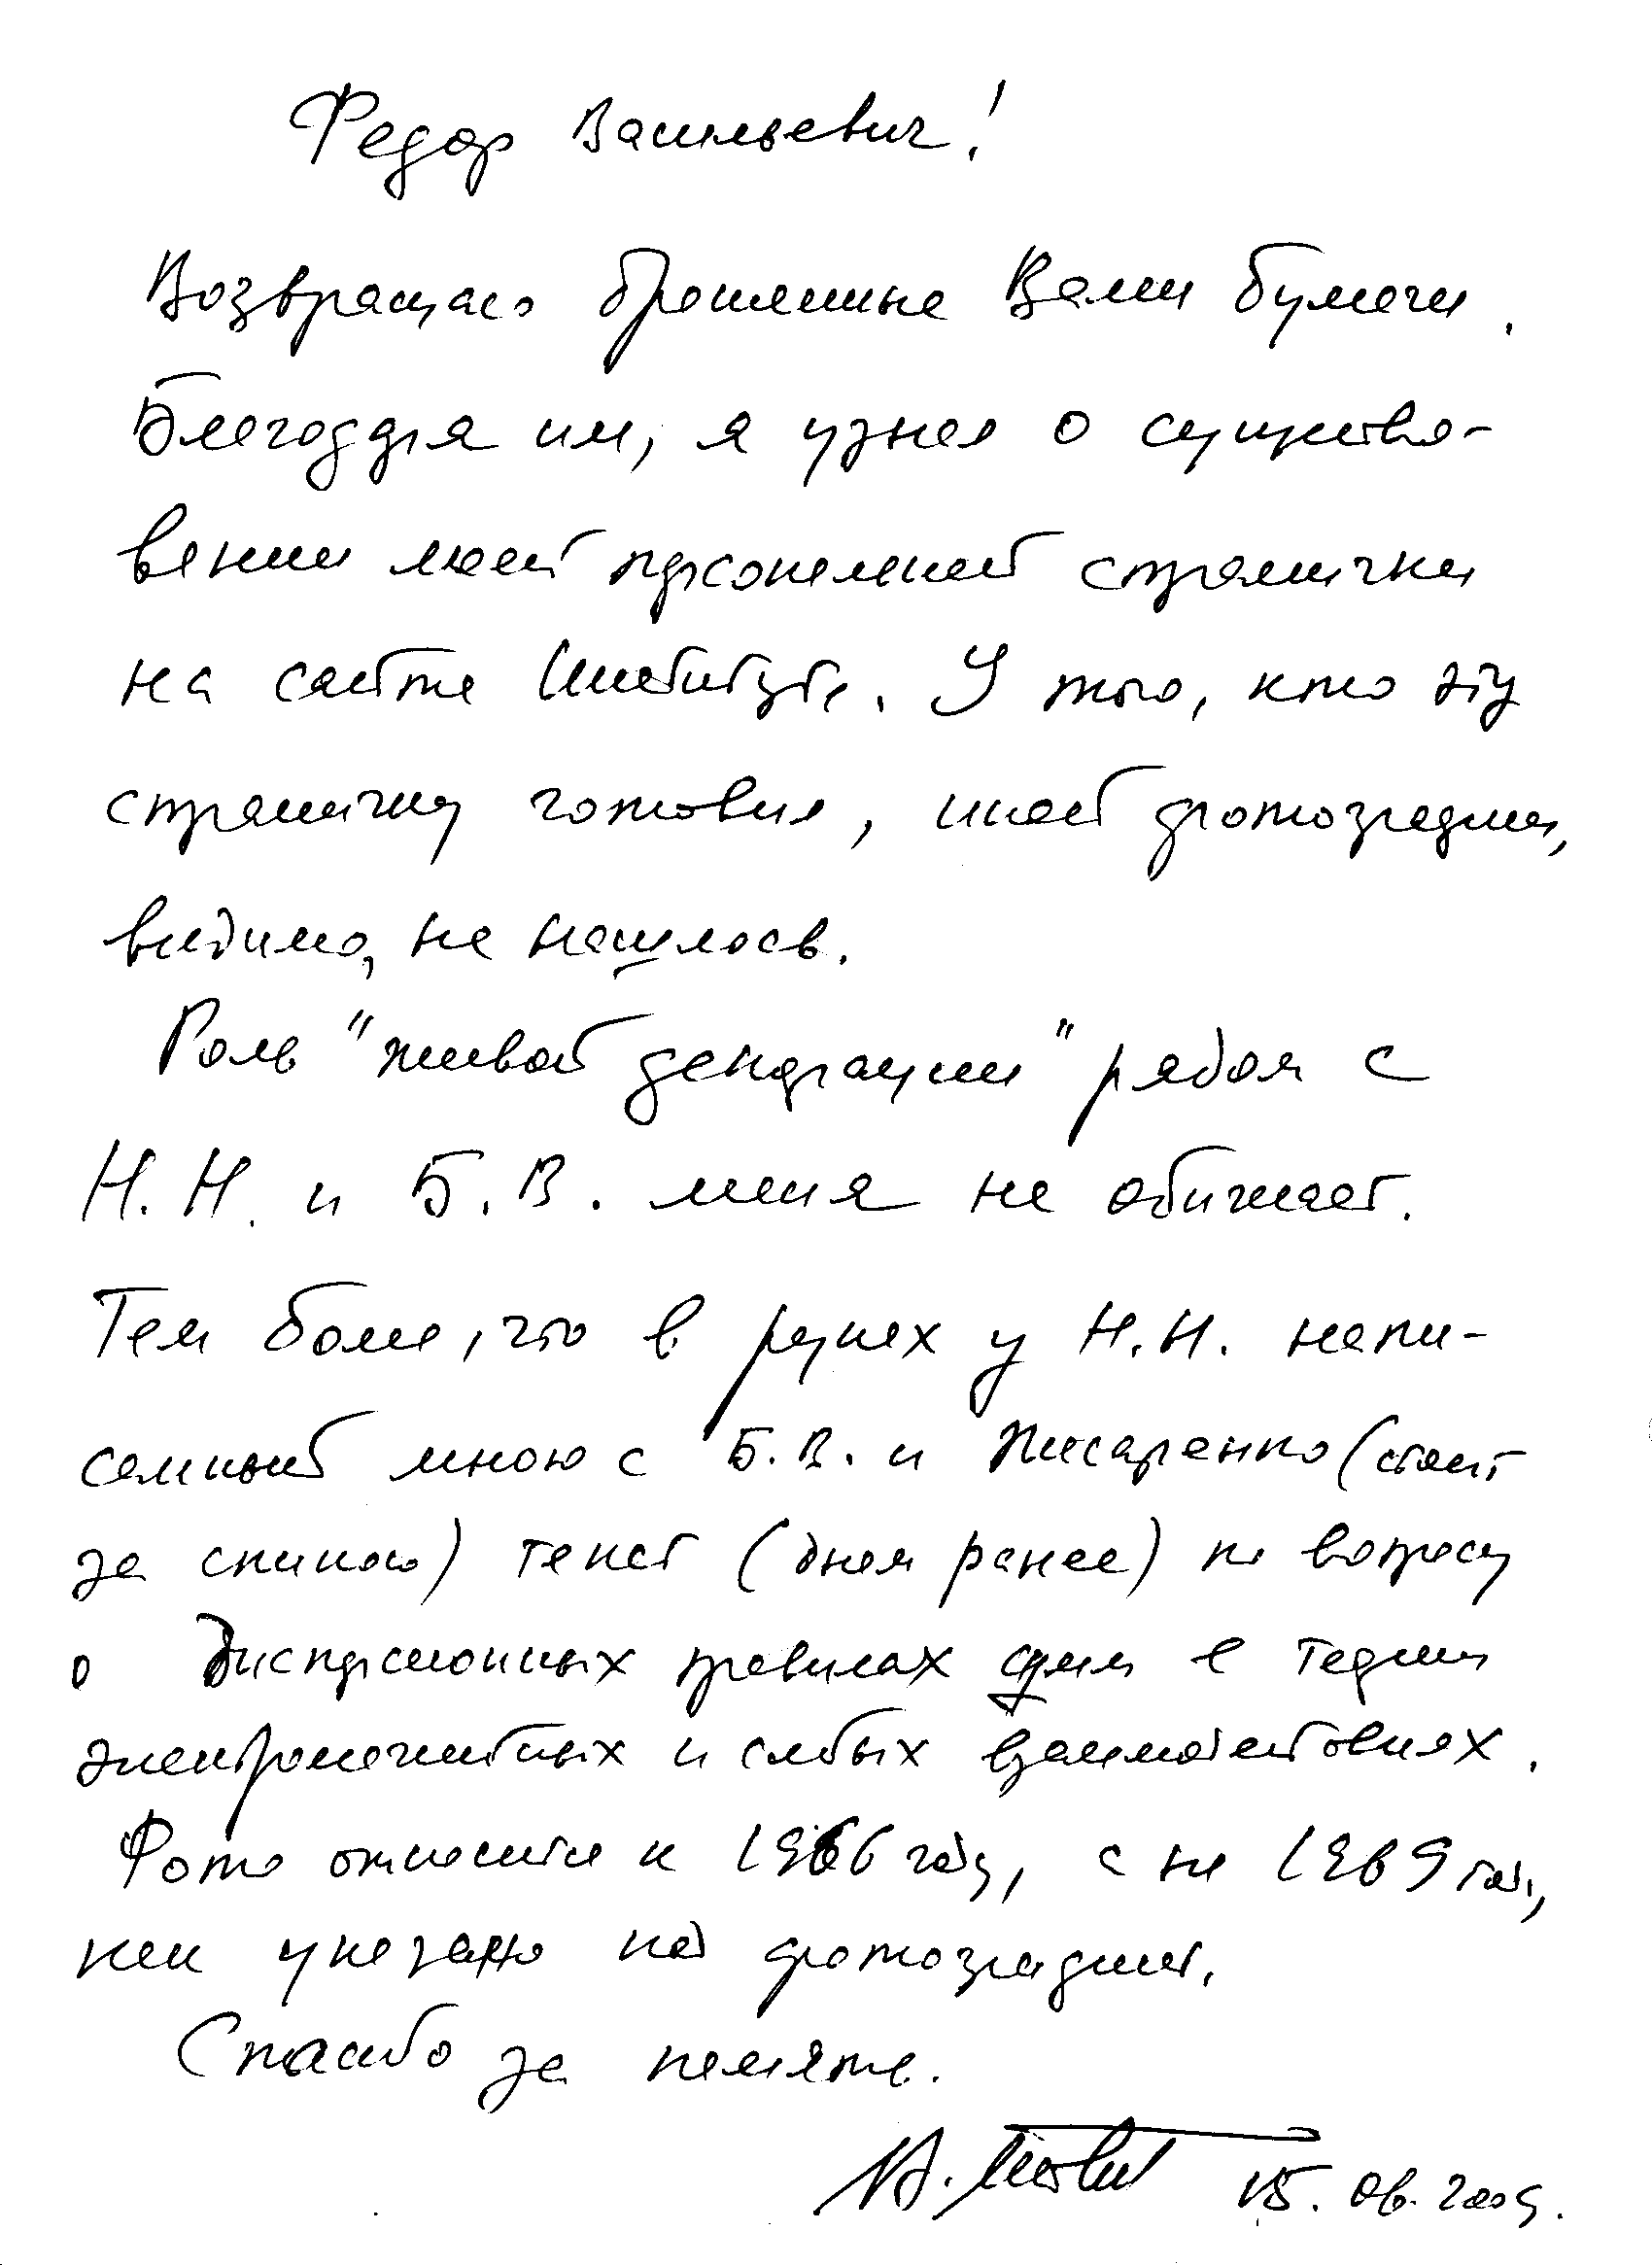 Федор Васильевич!
Возвращаю брошенные Вами бумаги.
Благодаря им, я узнал о существо-
вании моей персональной странички
на сайте Института. У того, кто эту
страничку готовил, иной фотографии,
видимо, не нашлось.
Роль "живой декорации" рядом с
Н.Н. и Б.В. меня не обижает.
Тем более, что в руках у Н.Н. напи-
санный мною с Б.В. и Писаренко (стоит
за спиной) текст (днем ранее) по вопросу
о дисперсионных правилах сумм в теории
электромагнитных и слабых взаимодействиях.
Фото относится к 1966 году, а не 1969 году,
как указано под фотографией.
Спасибо за память.
15.06.2009.